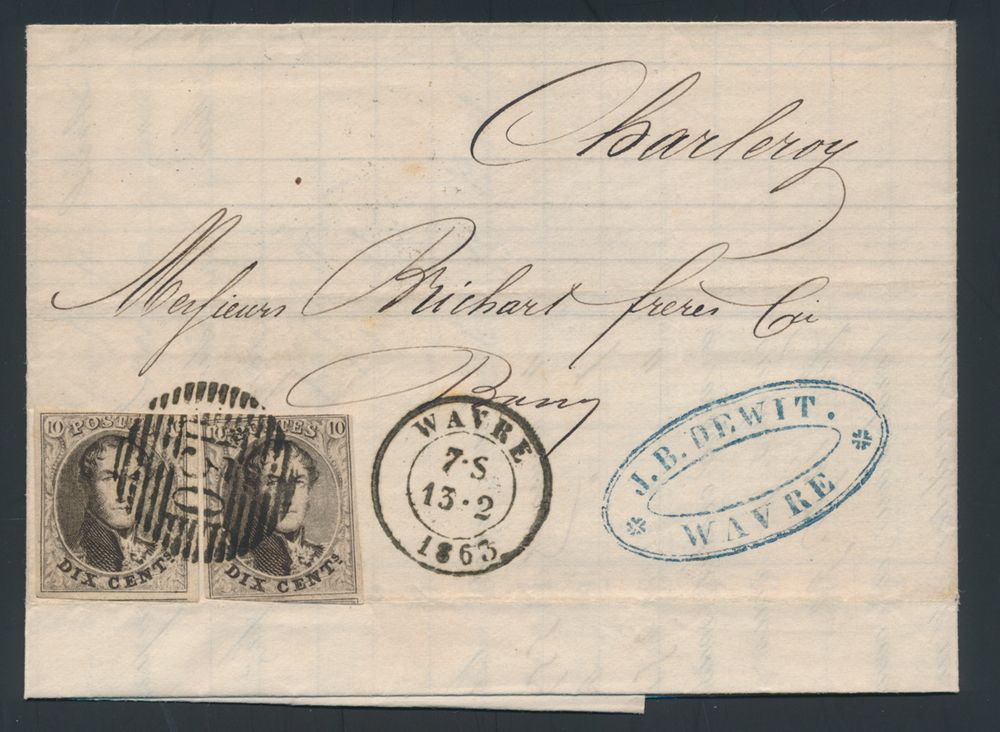 Charleroy
Messieurs Brichart frères & Cie
10 POSTES 10
DIX CENTs
10 POSTES 10
DIX CENTs
WAVRE
7·S
13·2
1863
J. B. DEWIT.
WAVRE